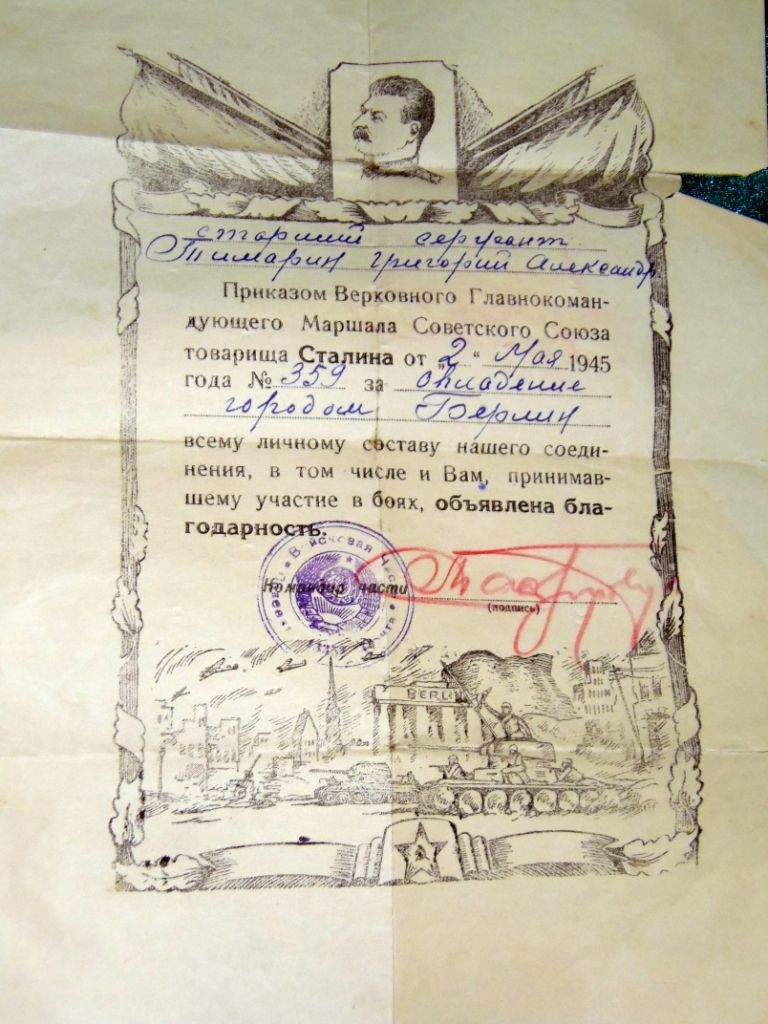 старший сержант
Тимарин Григорий Александр
Приказом Верховного Главнокоман-
дующего Маршала Советского Союза
товарища Сталина от „2“ Мая 1945
года № 359 за овладение
городом Берлин
всему личному составу нашего соеди-
нения, в том числе и Вам, принимав-
шему участие в боях, объявлена бла-
годарность.
Войсковая
Командир части
(подпись)
BERLIN